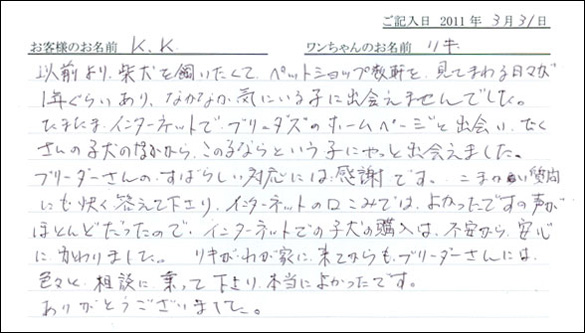 ご記入日 2011年 3月31日
お客様のお名前 K.K ワンちゃんのお名前 リキ
以前より、柴犬を飼いたくて、ペットショップ数軒を、見てまわる日々が
1年ぐらいあり、なかなか気にいる子に出会えませんでした。
たまたま、インターネットで、ブリーダーズのホームページと出会い、たく
さんの子犬のなかから、この子ならという子にやっと出会えました。
ブリーダーさんの、すばらしい対応には、感謝です。こまかい質問
にも快く答えて下さり、インターネットの口こみでは、よかったですの声が
ほとんどだったので、インターネットでの子犬の購入は、不安から、安心
に変わりました。リキがわが家に、来てからも、ブリーダーさんには、
色々と、相談に乗って下さり、本当によかったです。
ありがとうございました。